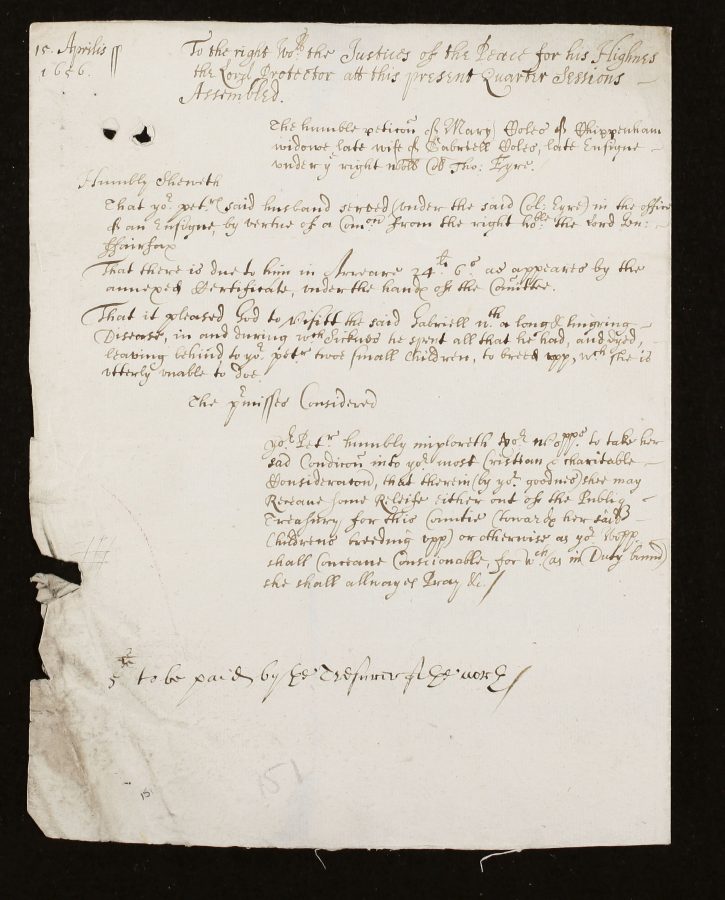 15. Aprilis
1656.
To the right Wo:ll the Justices of the Peace for his Highnes
the Lord Protector att this present Quarter Sessions
Assembled.
The humble peticon of Mary Coles of Chippenham
widowe late wife of Gabriell Coles, late Ensigne
under ye right wo:ll Col Tho: Eyre.
Humbly Sheweth
That yor. petr. said husband served (under the said Col: Eyre) in the office
of an Ensigne, by vertue of a Comon from the right hoble: the Lord Gen:
ffairfax
That there is due to him in Arreare 24li. 6s. as appeares by the
annexed Certificate, under the hands of the Comittee.
That it pleased God to visitt the said Gabriell wth. a long & lingring
Disease, in and during wch Sicknes he spent all that he had, and dyed,
leaving behind to yor. petr twoe small Children, to breed upp, wch she is
utterly unable to doe.
The pmisses Considered
yor. Petr. humbly imploreth yor. wopps. to take her
sad Condicon into yor. most Cristian & charitable
Consideraton, that therein (by yor. goodnes) shee may
Receave some Releife either out of the Publiq
Treasury for this Countie (towards her said
Childrens breeding upp) or otherwise as yor. Wopps.
shall Conceave Conscionable, for wch (as in Duty bound)
she shall allwayes Pray &c.
to be paid by the Tresurer of the north
151
15